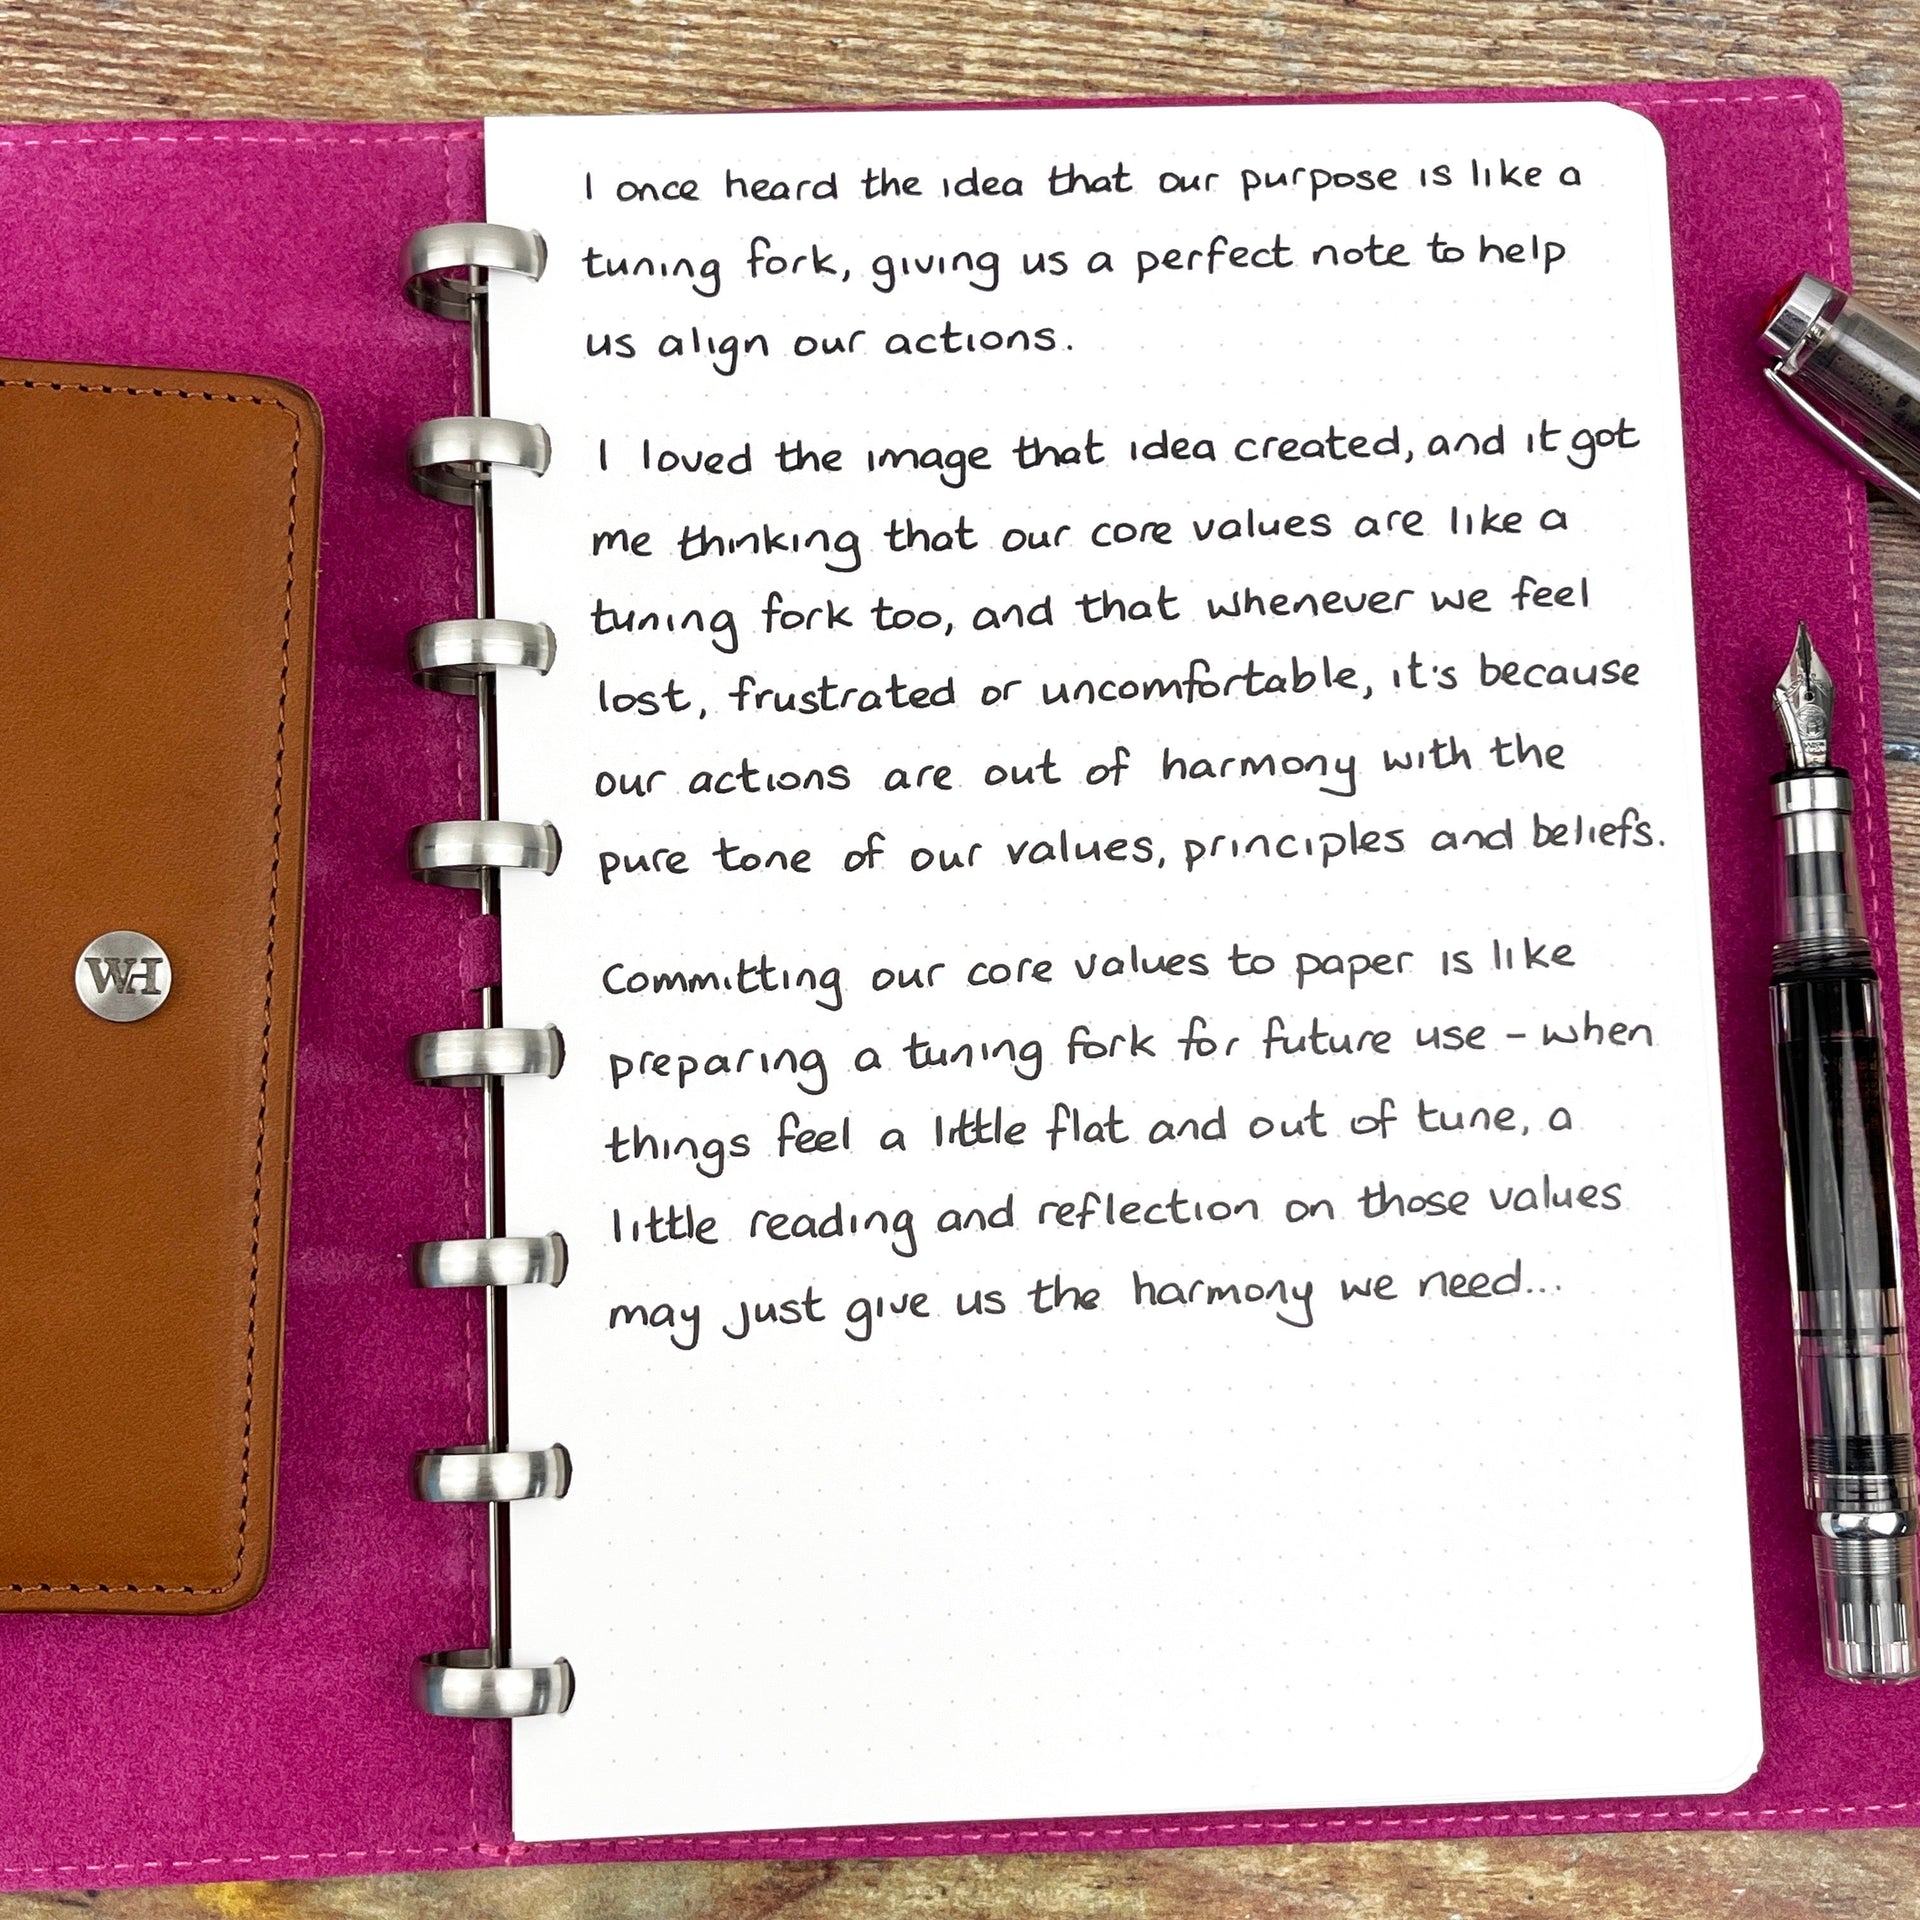 I once heard the idea that our purpose is like a
tuning fork, giving us a perfect note to help
us align our actions.
I loved the image that idea created, and it got
me thinking that our core values are like a
tuning fork too, and that whenever we feel
lost, frustrated or uncomfortable, it's because
our actions are out of harmony with the
pure tone of our values, principles and beliefs.
Committing our core values to paper is like
preparing a tuning fork for future use - when
things feel a little flat and out of tune, a
little reading and reflection on those values
may just give us the harmony we need...
WH